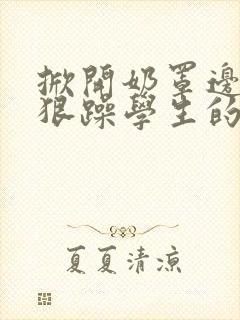 掀開奶罩邊
狠躁學生的
夏夏清涼